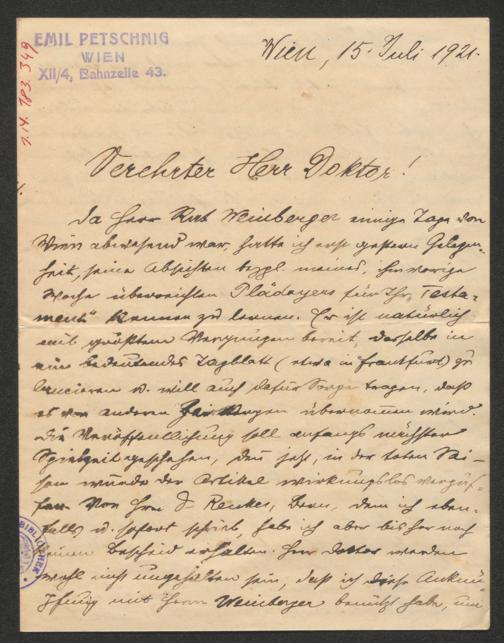 EMIL PETSCHNIG
WIEN
XII/4, Bahnzeile 43.
Wien, 15. Juli 1921.
Verehrter Herr Doktor!
Da Herr Rat Weinberger einige Tage von
Wien abwesend war, hatte ich erst gestern Gelegen-
heit, seine Absichten bezgl. meines, ihm vorige
Woche überreichten Plädoyers für Ihr „Testa-
ment" kennen zu lernen. Er ist natürlich
mit größtem Vergnügen bereit, dasselbe in
ein bedeutendes Tagblatt (etwa in Frankfurt) zu
lancieren u. will auch dafür Sorge tragen, daß
es von anderen Zeitungen übernommen wird.
Die Veröffentlichung soll anfangs nächster
Spielzeit geschehen, denn jetzt, in der toten Sai-
son würde der Artikel wirkungslos verpuf-
fen. Von Hrn. D. Bern, dem ich eben-
falls u. sofort schrieb, habe ich aber bisher noch
keinen Bescheid erhalten. Herr Doktor werden
wohl nicht ungehalten sein, daß ich diese Anknü-
pfung mit Herrn Weinberger benützt habe, um
BIBLIOTHEK